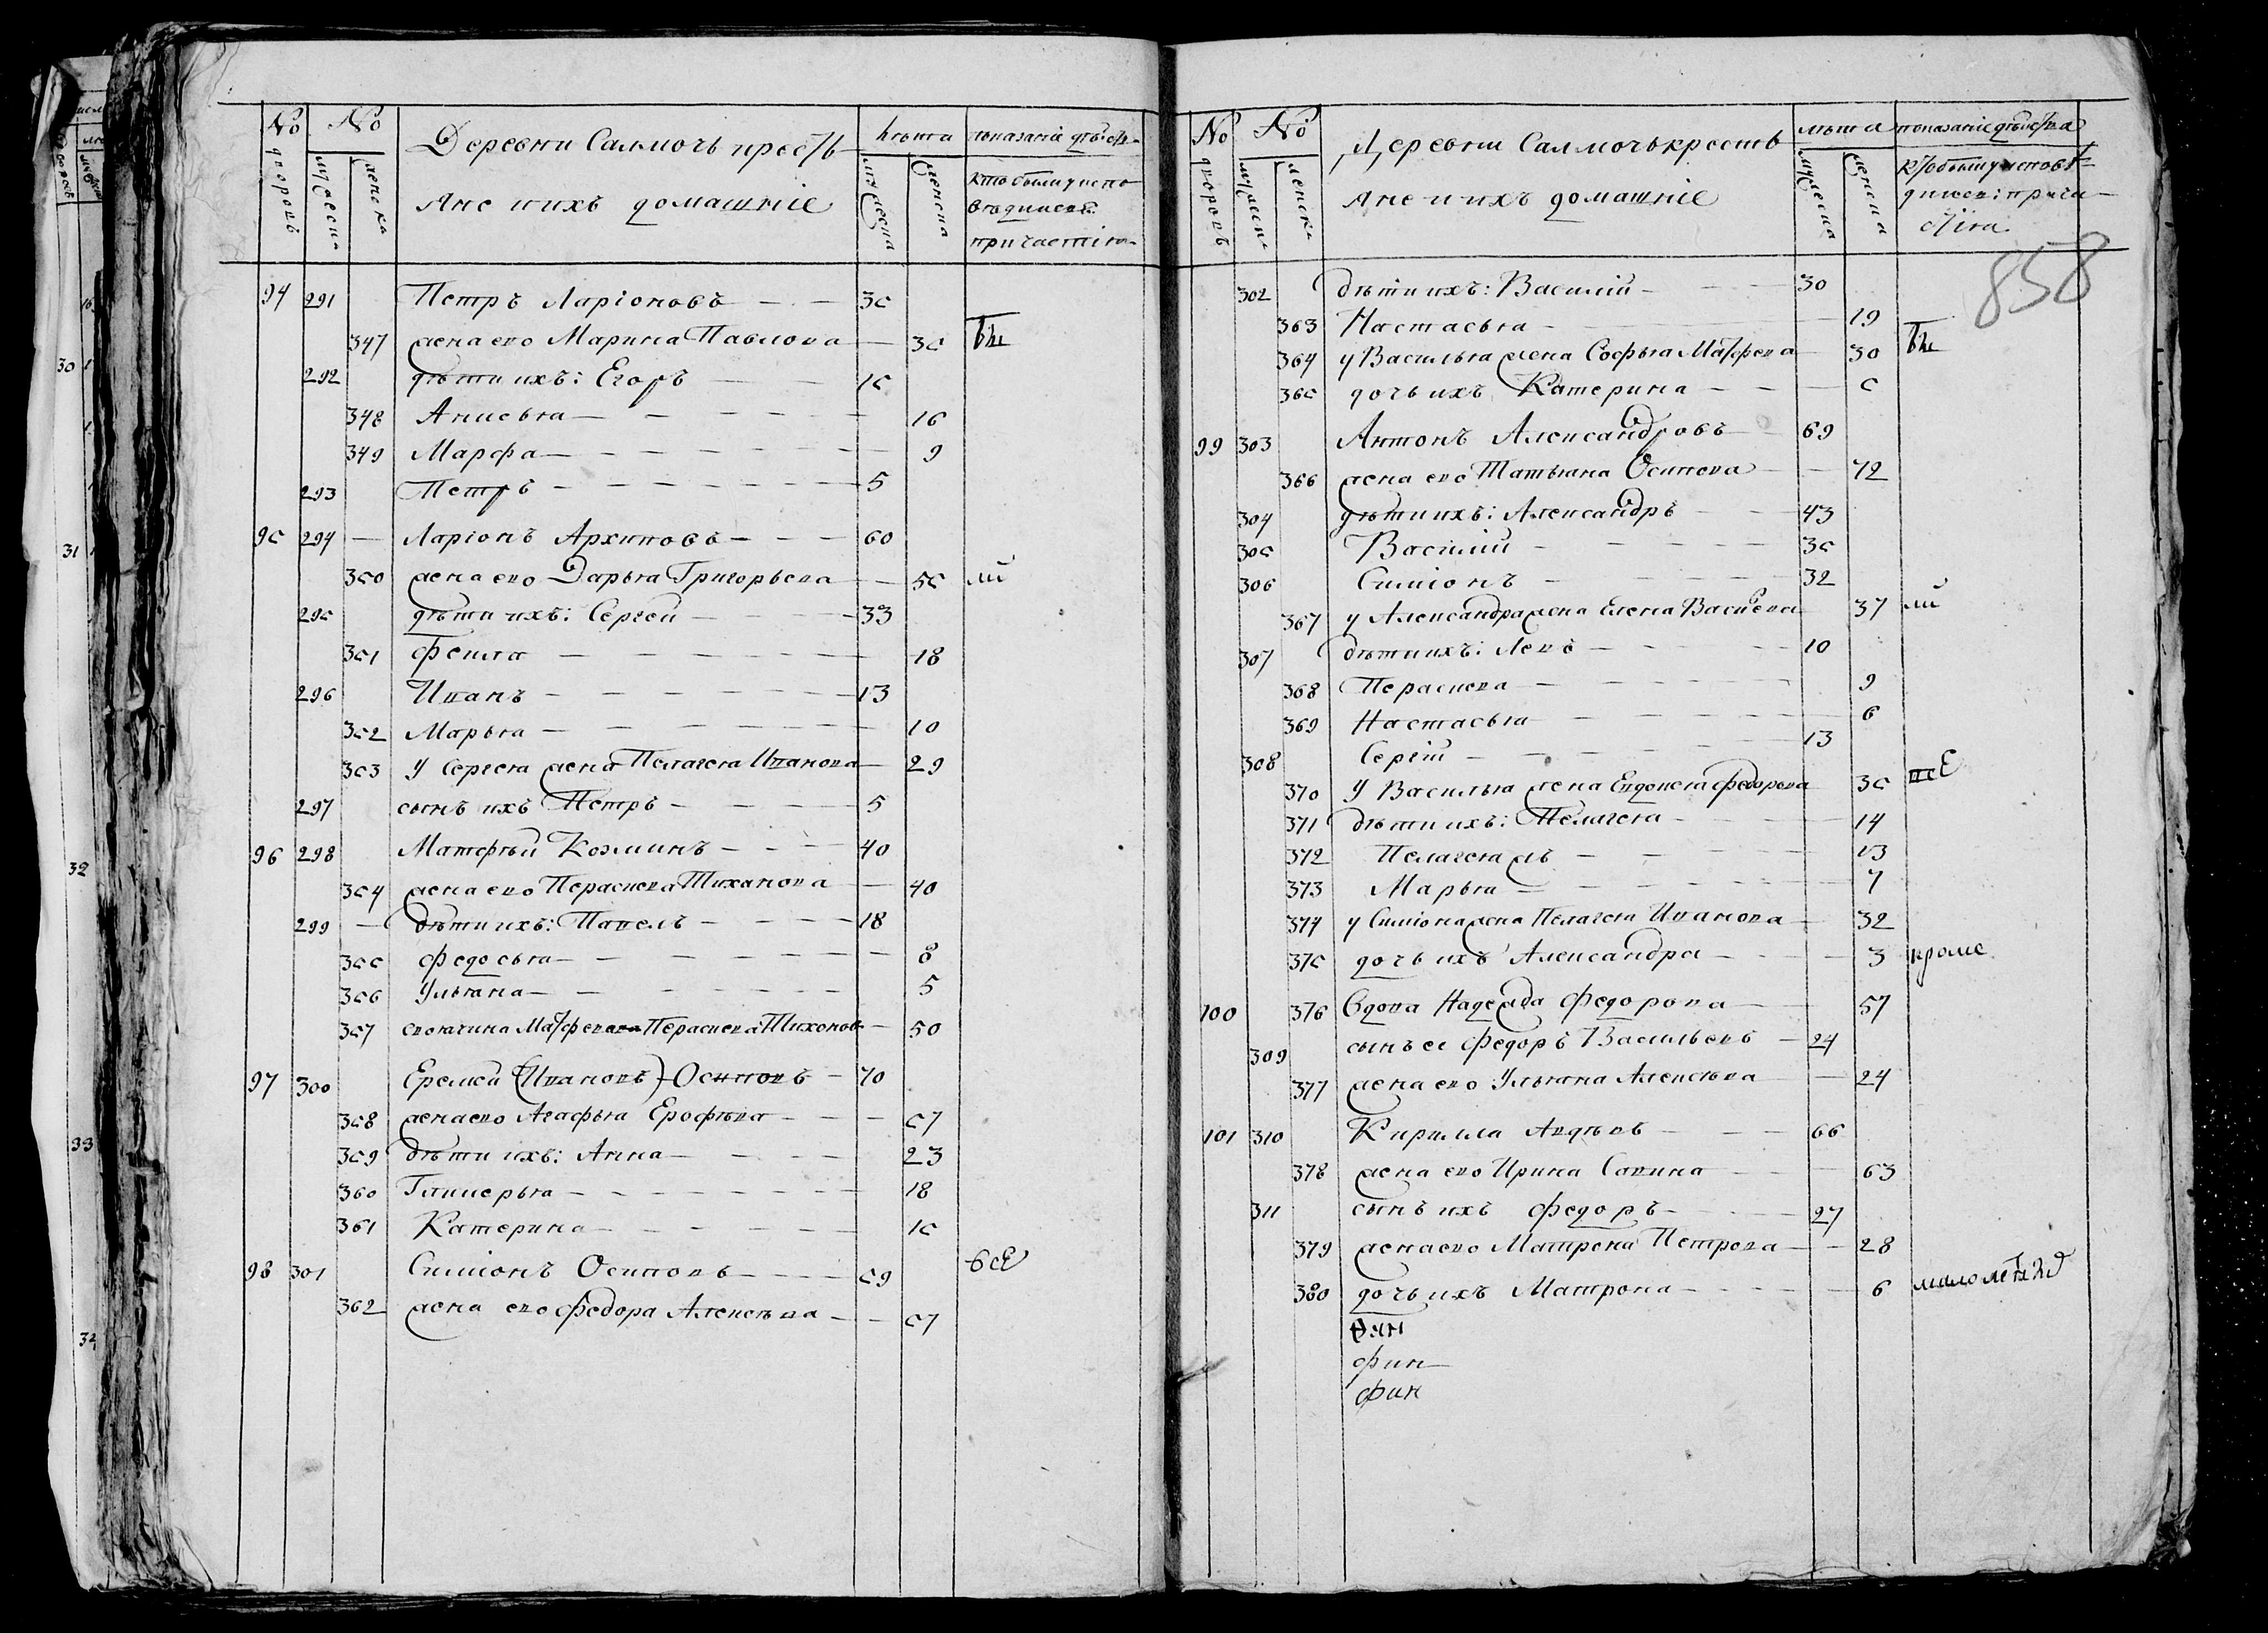 № дворовъ № мужеска женска Деревни Салмочь кресть- лѣта мужеска женска показаніе дѣйств-
яне и ихъ домашніе кто былъ у испо-
вѣди и св:
причастія
94 291 Петръ Ларіоновъ 35
347 жена ево Марина Павлова 35 бы
292 дѣти ихъ: Егоръ 15
348 Анисья 16
349 Марфа 9
293 Петръ 5
95 294 Ларіонъ Архиповъ 60
350 жена ево Дарья Григорьева 55 ли
295 дѣти ихъ: Сергей 33
351 Фекла 18
296 Иванъ 13
352 Марья 10
353 у Сергея жена Пелагея Иванова 29
297 сынъ ихъ Петръ 5
96 298 Матфѣй Козминъ 40
354 жена ево Пераскева Тиханова 40
299 дѣти ихъ: Павелъ 18
355 Федосья 8
356 Ульяна 5
357 своячина Матфева Пераскева Тихонов 50
97 300 Еремей (Ивановъ) Осиповъ 70
358 жена ево Агафья Ерофѣва 57
359 дѣти ихъ: Анна 23
360 Гликерья 18
361 Катерина 15
98 301 Симіонъ Осиповъ 59 всЕ
362 жена ево Федора Алексѣва 57
№ дворовъ № мужеска женска Деревни Салмочь кресть лѣта мужеска женска показаніе дѣйства
яне и ихъ домашніе кто былъ у исповѣ-
ди и св: прича-
стія
858
302 дѣти ихъ: Василій 30
363 Настасья 19
364 у Василья жена Софья Матфева 30 бы
365 дочь ихъ Катерина 5
99 303 Антонъ Александровъ 69
366 жена ево Татьяна Осипова 72
304 дѣти ихъ: Александръ 43
305 Василій 35
306 Симіонъ 32
367 у Александра жена Елена Васильева 37 ли
307 дѣти ихъ: Левъ 10
368 Пераскева 9
369 Настасья 6
308 Сергій 13
370 у Василья жена Евдокея Федорова 35 всЕ
371 дѣти ихъ: Пелагея 14
372 Пелагея жъ 13
373 Марья 7
374 у Симіона жена Пелагея Иванова 32
375 дочь ихъ Александра 3 кроме
100 376 Вдова Надежда Федорова 57
309 сынъ ее Федоръ Васильевъ 24
377 жена ево Ульяна Алексѣва 24
101 310 Кирилла Авдѣвъ 66
378 жена ево Ирина Савина 63
311 сынъ ихъ Федоръ 27
379 жена ево Матрена Петрова 28
380 дочь ихъ Матрона 6
Фин
Фин
Фин